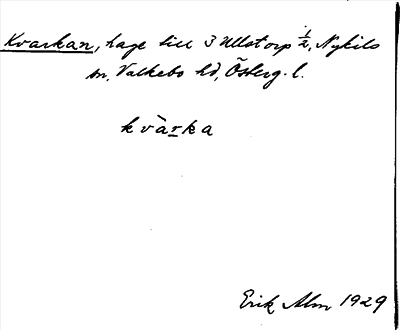 Kvarkan, hage till 3 Ullstorp 1/2, Nykils
sn, Valkebo hd, Österg. l.
kvàrka
Erik Alm 1929